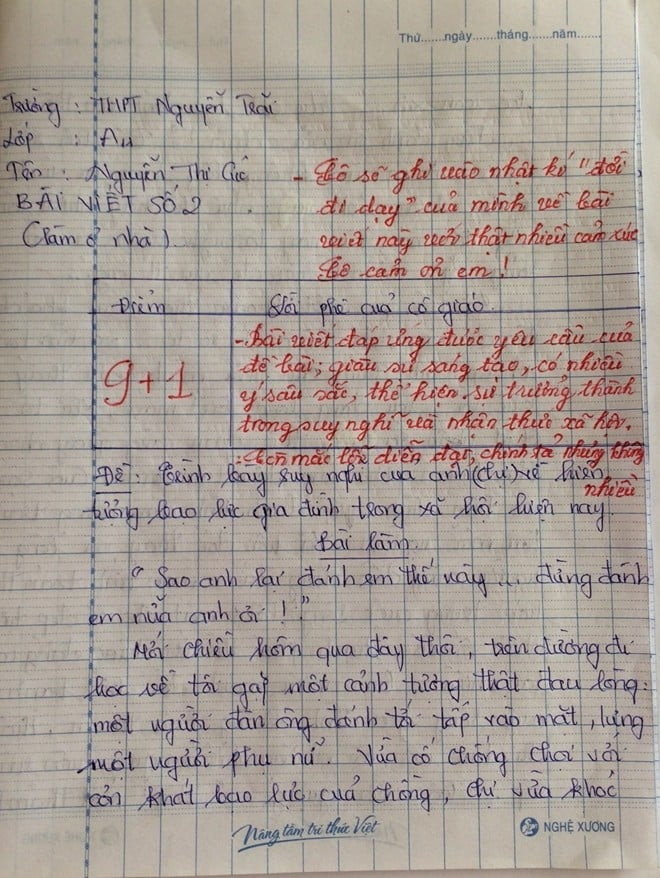 Thứ.......ngày.......tháng.......năm.......
Trường : THPT Nguyễn Trãi
Lớp : A4
Tên : Nguyễn Thị Cúc
BÀI VIẾT SỐ 2
(Làm ở nhà).
- Cô sẽ ghi vào nhật kí "đời
đi dạy" của mình về bài
viết này với thật nhiều cảm xúc
Cô cảm ơn em!
Điểm
Lời phê của cô giáo.
9+1
- Bài viết đáp ứng được yêu cầu của
đề bài; giàu sự sáng tạo, có nhiều
ý sâu sắc, thể hiện sự trưởng thành
trong suy nghĩ và nhận thức xã hội.
- Còn mắc lỗi diễn đạt, chính tả nhưng không
nhiều
Đề : Trình bày suy nghĩ của anh (chị) về hiện
tượng bạo lực gia đình trong xã hội hiện nay.
Bài làm
"Sao anh lại đánh em thế này... đừng đánh
em nữa anh ơi!"
Mới chiều hôm qua đây thôi, trên đường đi
học về tôi gặp một cảnh tượng thật đau lòng:
một người đàn ông đánh tới tấp vào mặt, lưng
một người phụ nữ. Vừa cố chống chọi với
cơn khát bạo lực của chồng, chị vừa khóc
Nâng tầm trí thức Việt
NGHỆ XƯƠNG